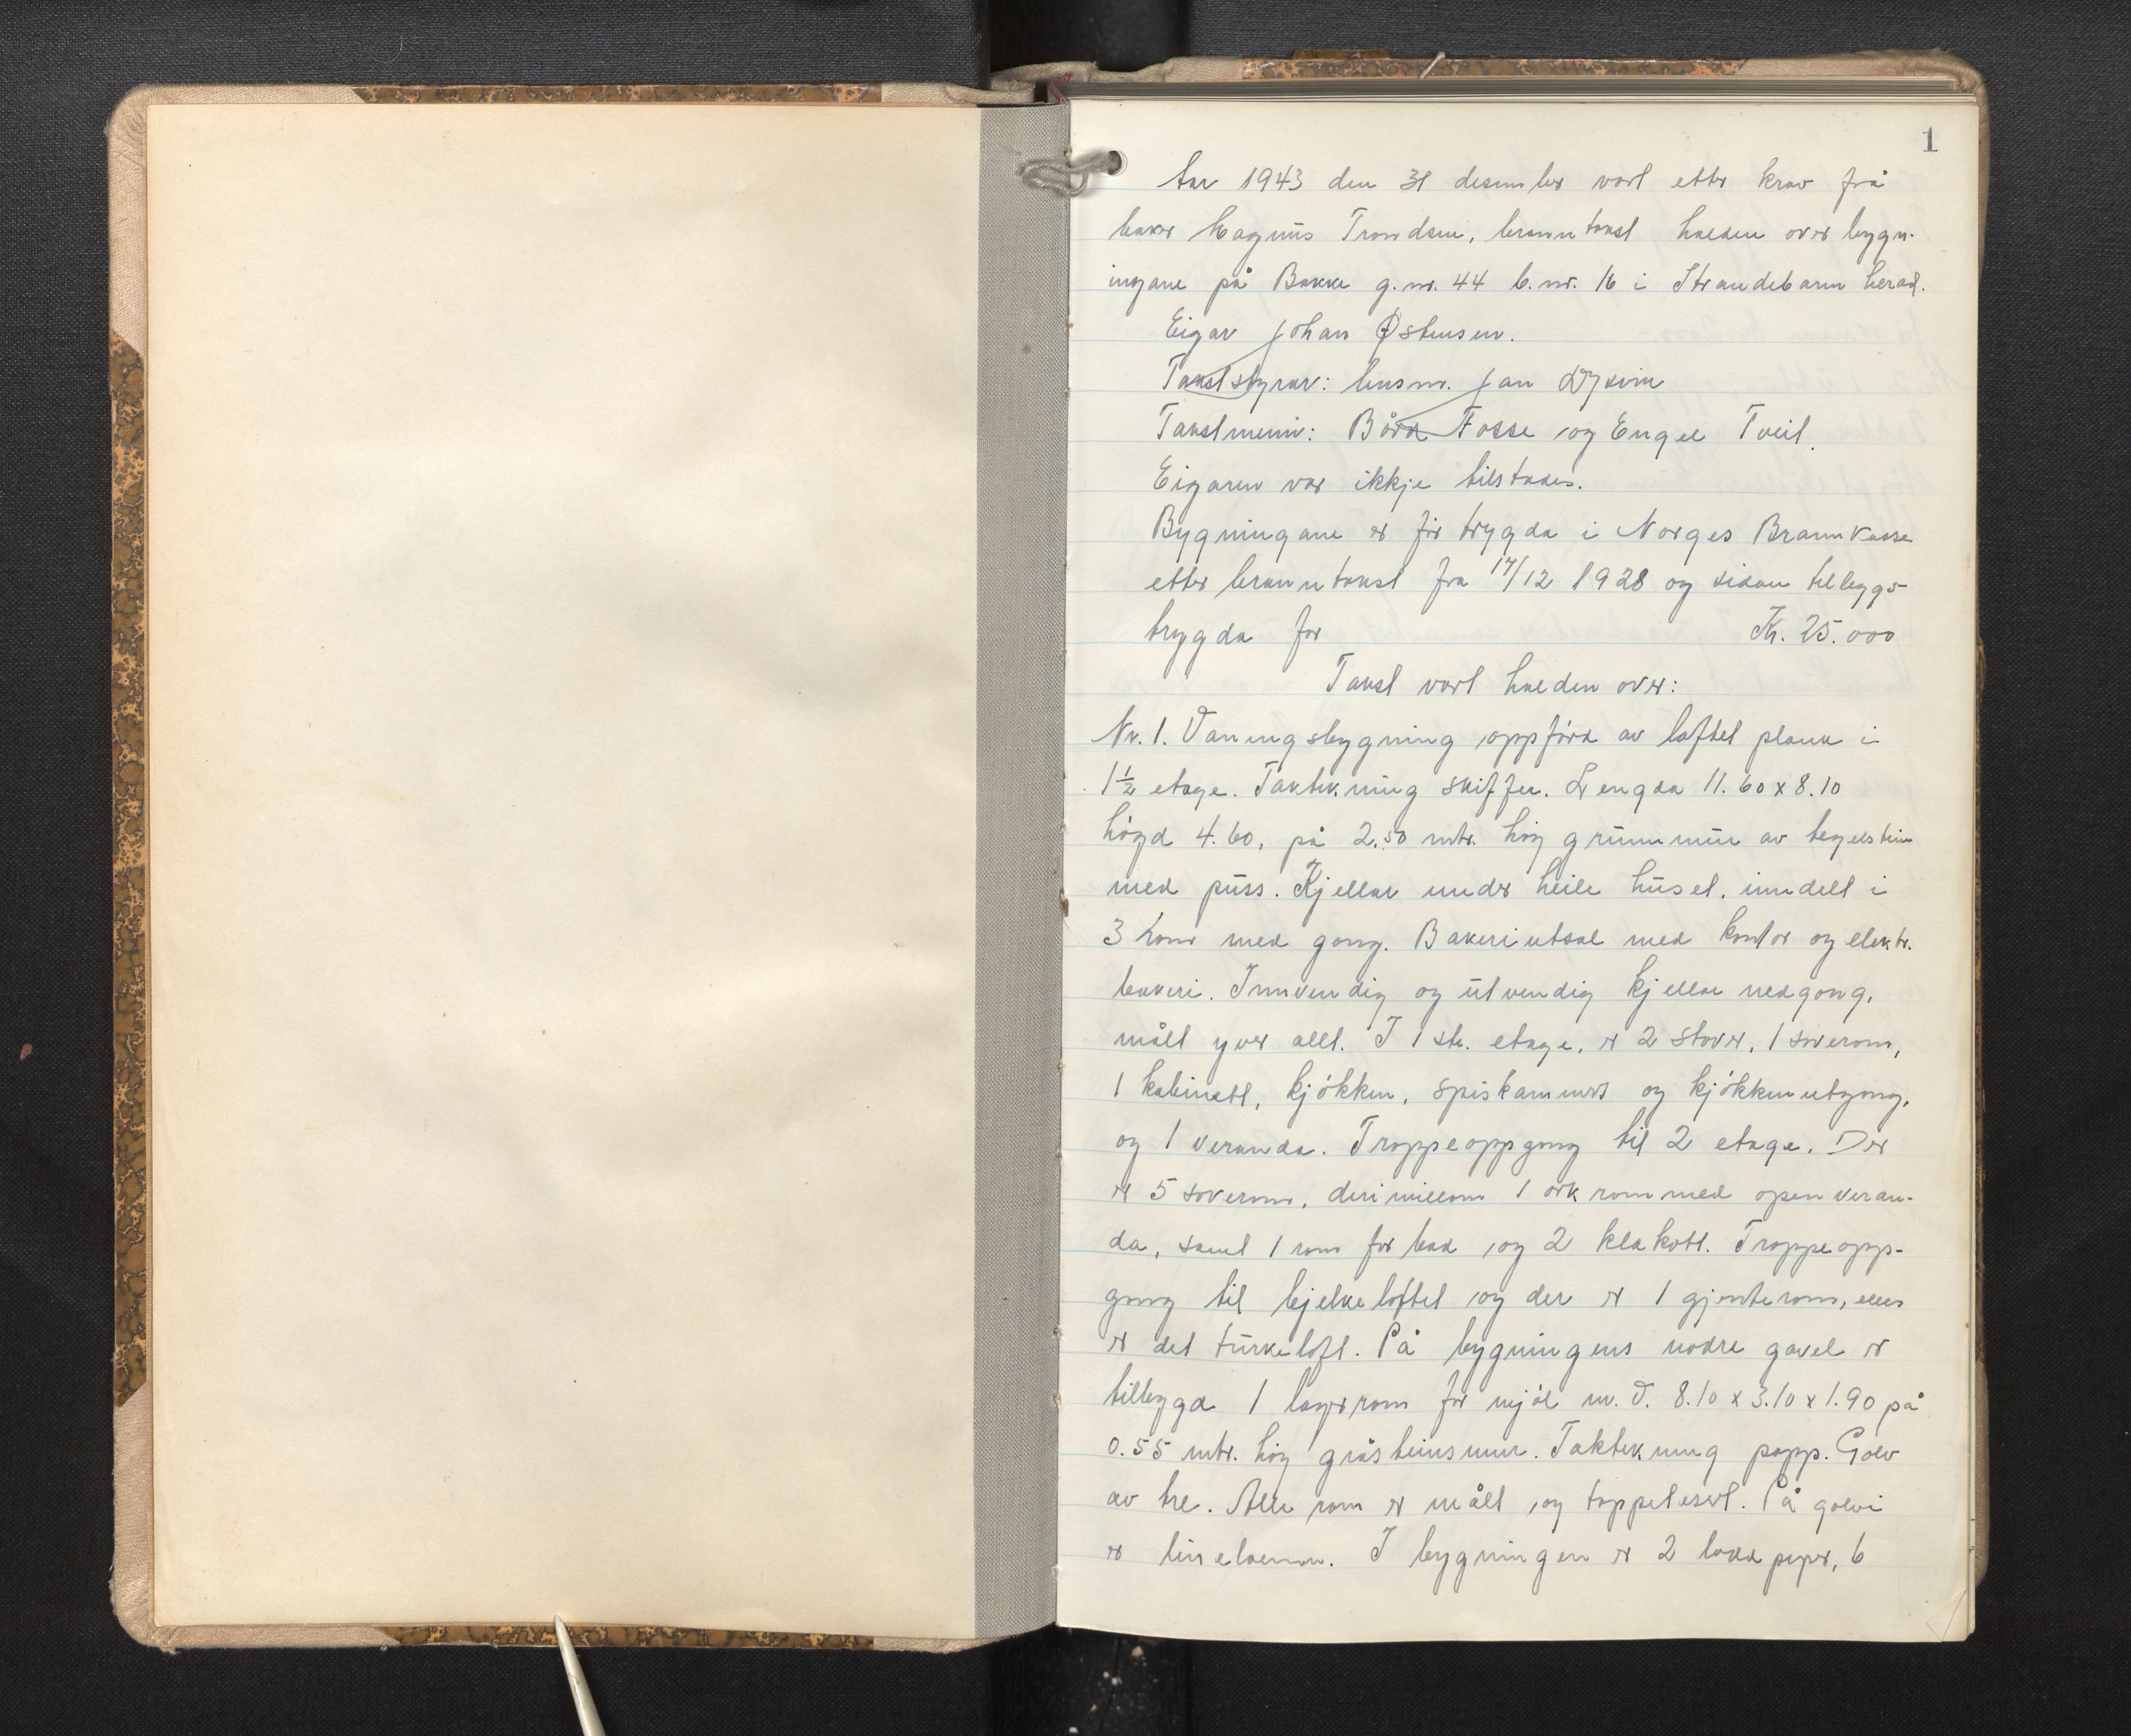 1
År 1943 den 31 desember vart etter krav frå
baker Magnus Trondsen, branntakst halden over bygn-
ingane på Bakke g.nr. 44 b.nr. 16 i Strandebarm herad.
Eigar Johan Østensen.
Takststyrar: lensm. Jan Dysvik
Takstmenn: Bård Fosse og Engel Tveit.
Eigaren var ikkje tilstades.
Bygningane er før trygda i Norges Brannkasse
etter branntakst fra 17/12 1928 og sidan tilleggs-
trygda for Kr. 25.000
Takst vart halden over:
Nr. 1. Vaningsbygning oppførd av laftet plank i
1½ etage. Taktekning skiffer. Lengda 11.60 x 8.10
høgd 4.60, på 2.50 mtr. høg grunnmur av teglstein
med puss. Kjellar under heile huset, inndelt i
3 rom med gong. Bakeriutsal med kontor og elektr.
bakeri. Innvendig og utvendig kjellar nedgong,
målt yver allt. I 1ste. etage, er 2 stover, 1 soverom,
1 kabinett, kjøkken, spiskammers og kjøkkenutgong,
og 1 veranda. Trappeoppgong til 2 etage. Der
er 5 soverom, derimillom 1 ark rom med open veran-
da, samt 1 rom for bad og 2 klakott. Trappeopp-
gong til bjelkeloftet og der er 1 gjenterom, elles
er det turkeloft. På bygningens nodre gavel er
tilbygd 1 lagerrom for mjøl m. V. 8.10 x 3.10 x 1.90 på
0.55 mtr. høg gråsteinsmur. Taktekning papp. Golv
av tre. Alle rom er målt og tappetsert. På golvi
er linoleum. I bygningen er 2 loddpiper, 6